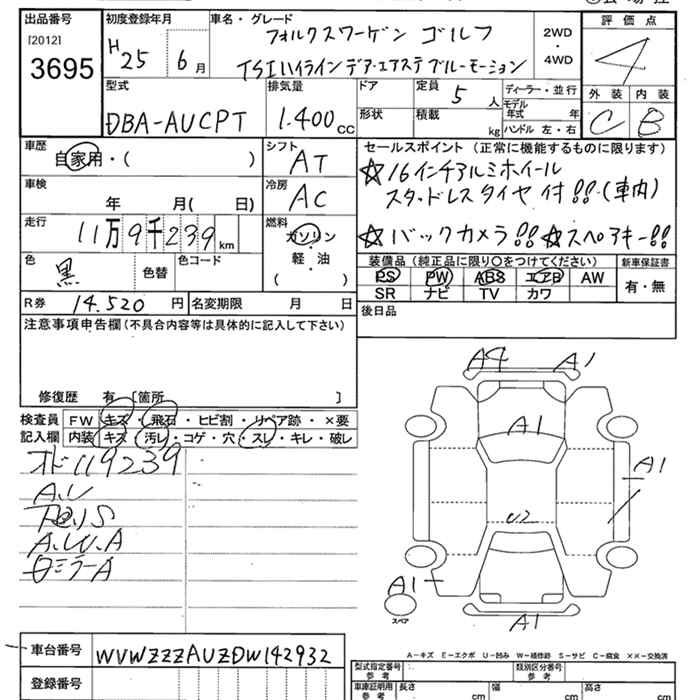 出品番号 初度登録年月 車名・グレード 評価点
[2012] H25 6月 フォルクスワーゲン ゴルフ 2WD・4WD 4
3695 TSIハイライン デア・エアステ ブルーモーション
型式 排気量 ドア 定員 5人 ディーラー・並行 外装 内装
DBA-AUCPT 1.400cc 形状 積載 kg モデル年式 年 C B
ハンドル 左・右
車歴 シフト セールスポイント (正常に機能するものに限ります)
自家用・( ) AT ☆16インチアルミホイール
車検 年 月( 日) 冷房 AC スタッドレスタイヤ付!!(車内)
走行 11万9千239km 燃料 ガソリン・軽・油 ( ) ☆バックカメラ!! ☆スペアキー!!
色 黒 色替 色コード 装備品(純正品に限り○をつけてください) 新車保証書
PS PW ABS エアB AW 有・無
SR ナビ TV カワ
R券 14.520円 名変期限 月 日 後日品
注意事項申告欄(不具合内容等は具体的に記入して下さい)
修復歴 有 [箇所 ]
検査員 FW キズ・飛石・ヒビ割・リペア跡・×要
記入欄 内装 キズ・汚レ・コゲ・穴・スレ・キレ・破レ
オド119239
A.U
A.W.A
ロミラーA
A4 A1
A1
A1
U2
A1
スペア
A1
A-キズ E-エクボ U-凹み W-補修跡 S-サビ C-腐食 XX-交換済
車台番号 WVWZZZAUZDW142932
型式指定番号 参考 類別区分番号 参考
登録番号
車庫証明用 参考 長さ cm 幅 cm 高さ cm